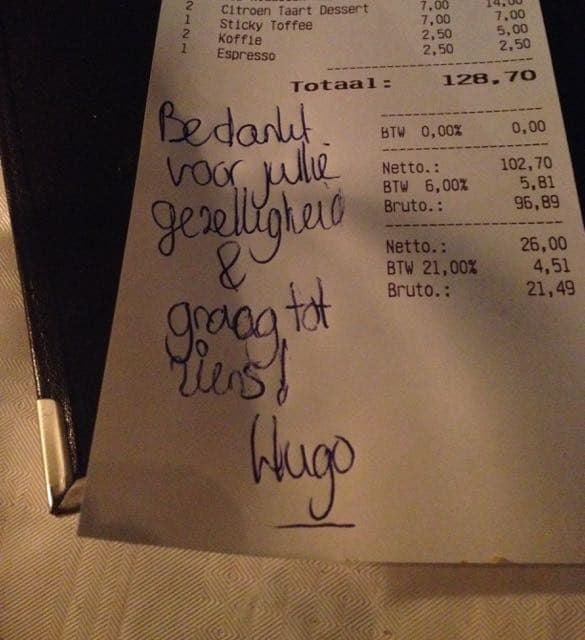 2 Citroen Taart Dessert 7,00 14,00
1 Sticky Toffee 7,00 7,00
2 Koffie 2,50 5,00
1 Espresso 2,50 2,50
Totaal: 128,70
BTW 0,00% 0,00
Netto.: 102,70
BTW 6,00% 5,81
Bruto.: 96,89
Netto.: 26,00
BTW 21,00% 4,51
Bruto.: 21,49
Bedankt
voor jullie
gezelligheid
&
graag tot
ziens!
Hugo